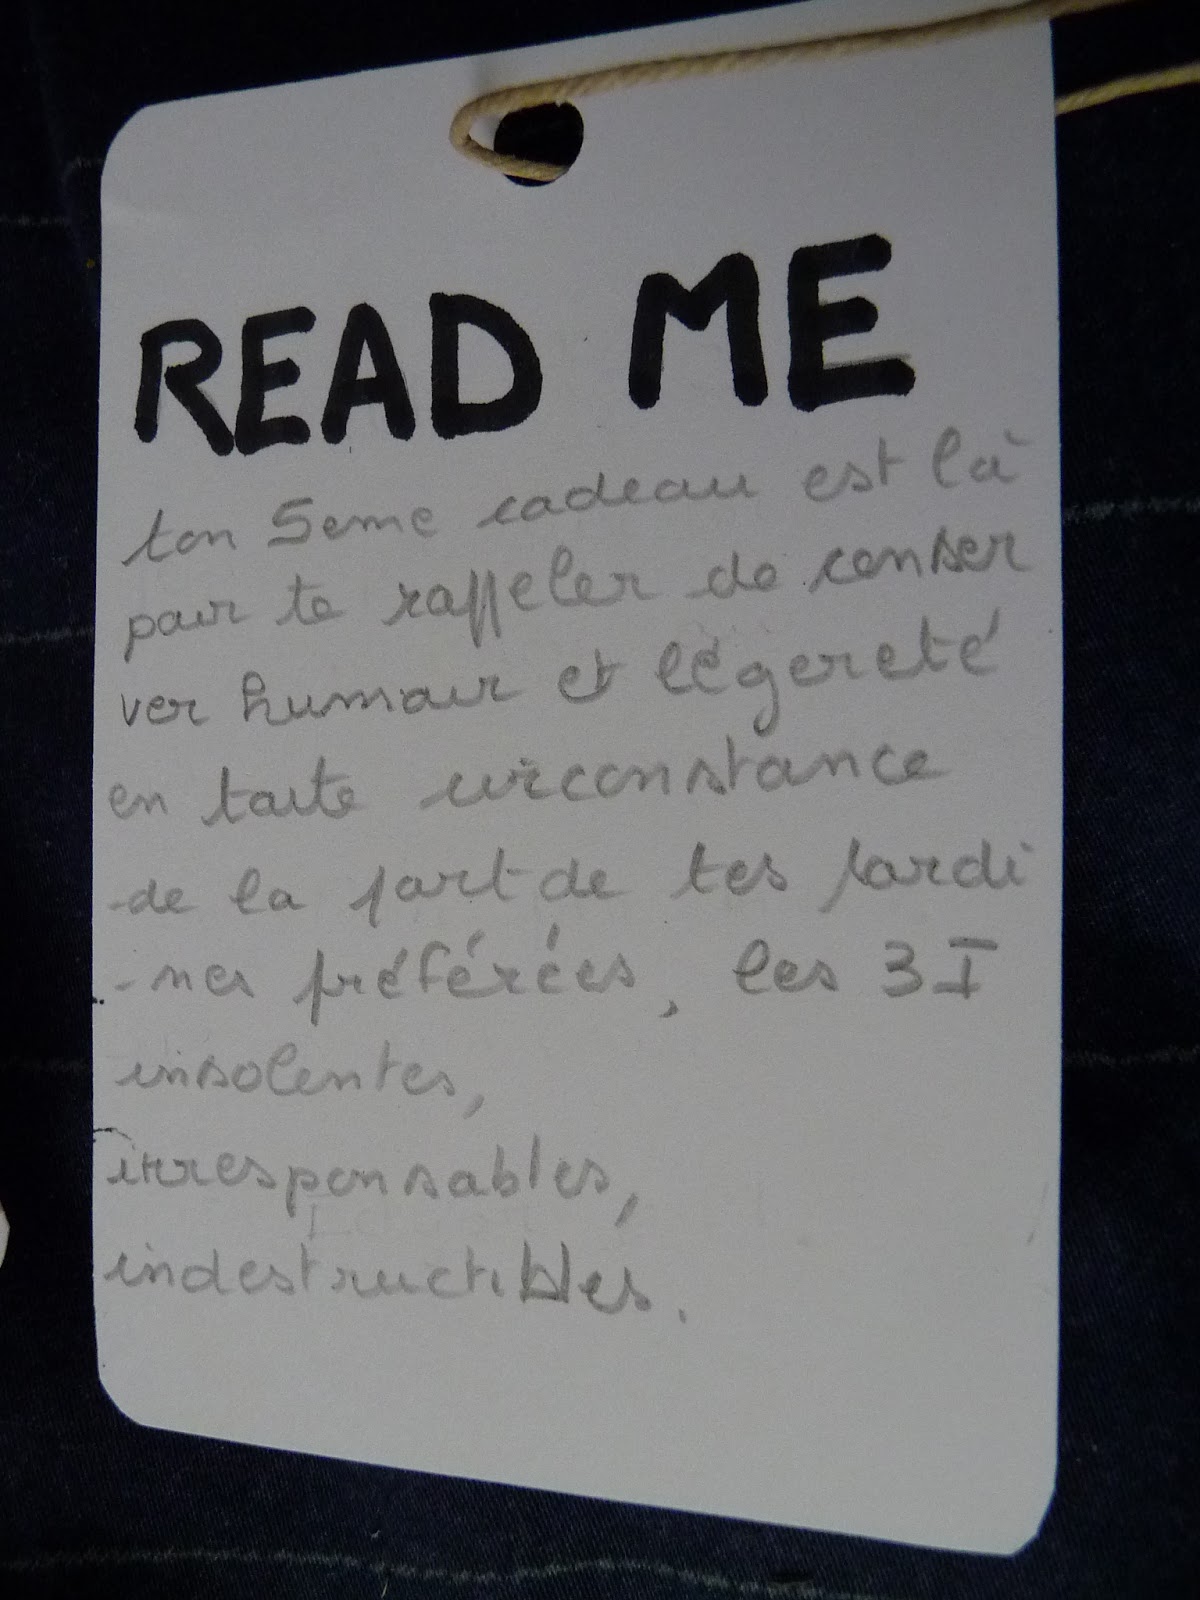 READ ME
ton 5eme cadeau est là
pour te rappeler de conser
ver humour et légereté
en toute circonstance
de la part de tes sardi
-nes préférées, les 3 I
insolentes,
irresponsables,
indestructibles.